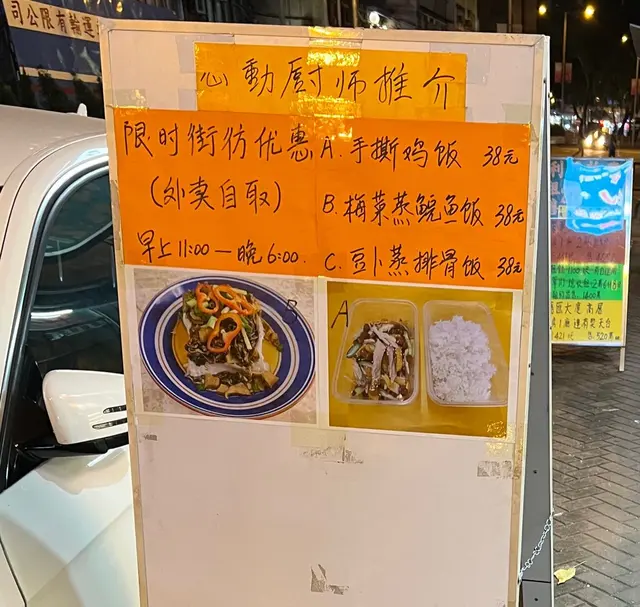 司公限有輸運
心動厨师推介
限时街彷优惠
(外卖自取)
早上11:00—晚6:00.
A.手撕鸡饭 38元
B.梅菜蒸鲩鱼饭 38元
C.豆卜蒸排骨饭 38元
B
A